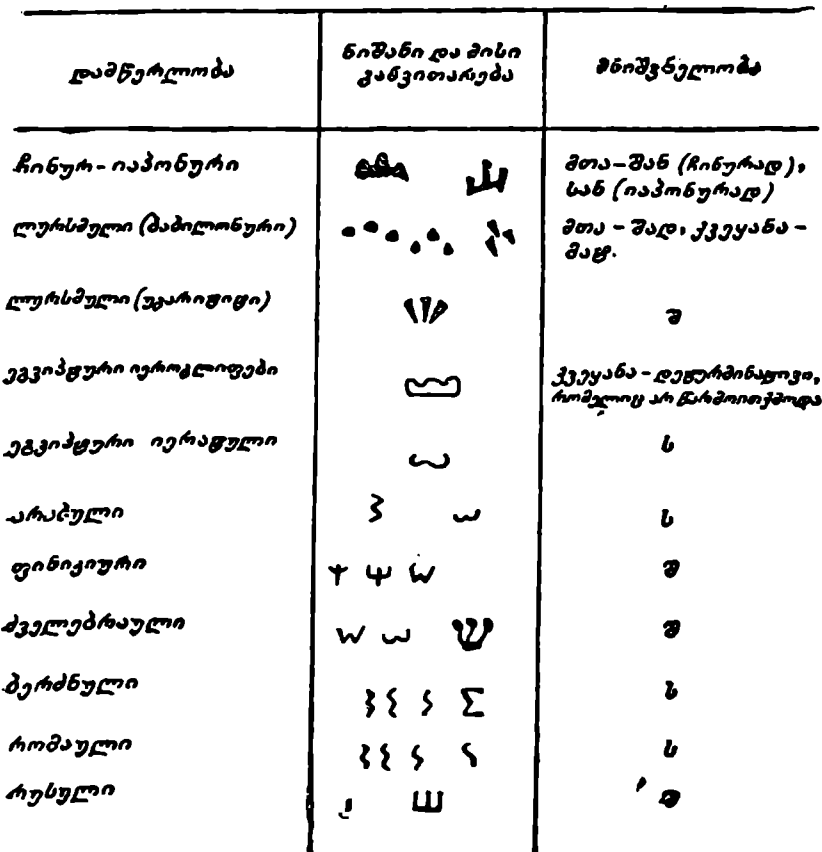 დამწერლობა
ნიშანი და მისი
განვითარება
მნიშვნელობა
ჩინურ-იაპონური
მთა-შან (ჩინურად),
სან (იაპონურად)
ლურსმული (ბაბილონური)
მთა - შად, ქვეყანა -
მატ.
ლურსმული (უგარიტიტი)
შ
ეგვიპტური იეროგლიფები
ქვეყანა - დეტერმინატივი,
რომელიც არ წარმოითქმოდა
ეგვიპტური იერატული
ს
არაბული
ს
ფინიკიური
შ
ძველებრაული
W
ש
შ
ბერძნული
Σ
ს
რომაული
S
ს
რუსული
Ш
შ